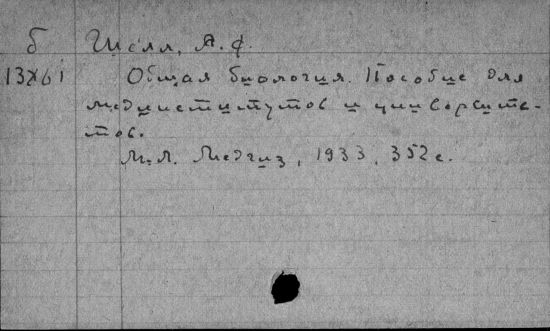 б Шелл, А. Ф.
13861 Общая биология. Пособие для
мединститутов и университе-
тов.
М.Л. Медгиз, 1933, 352 с.